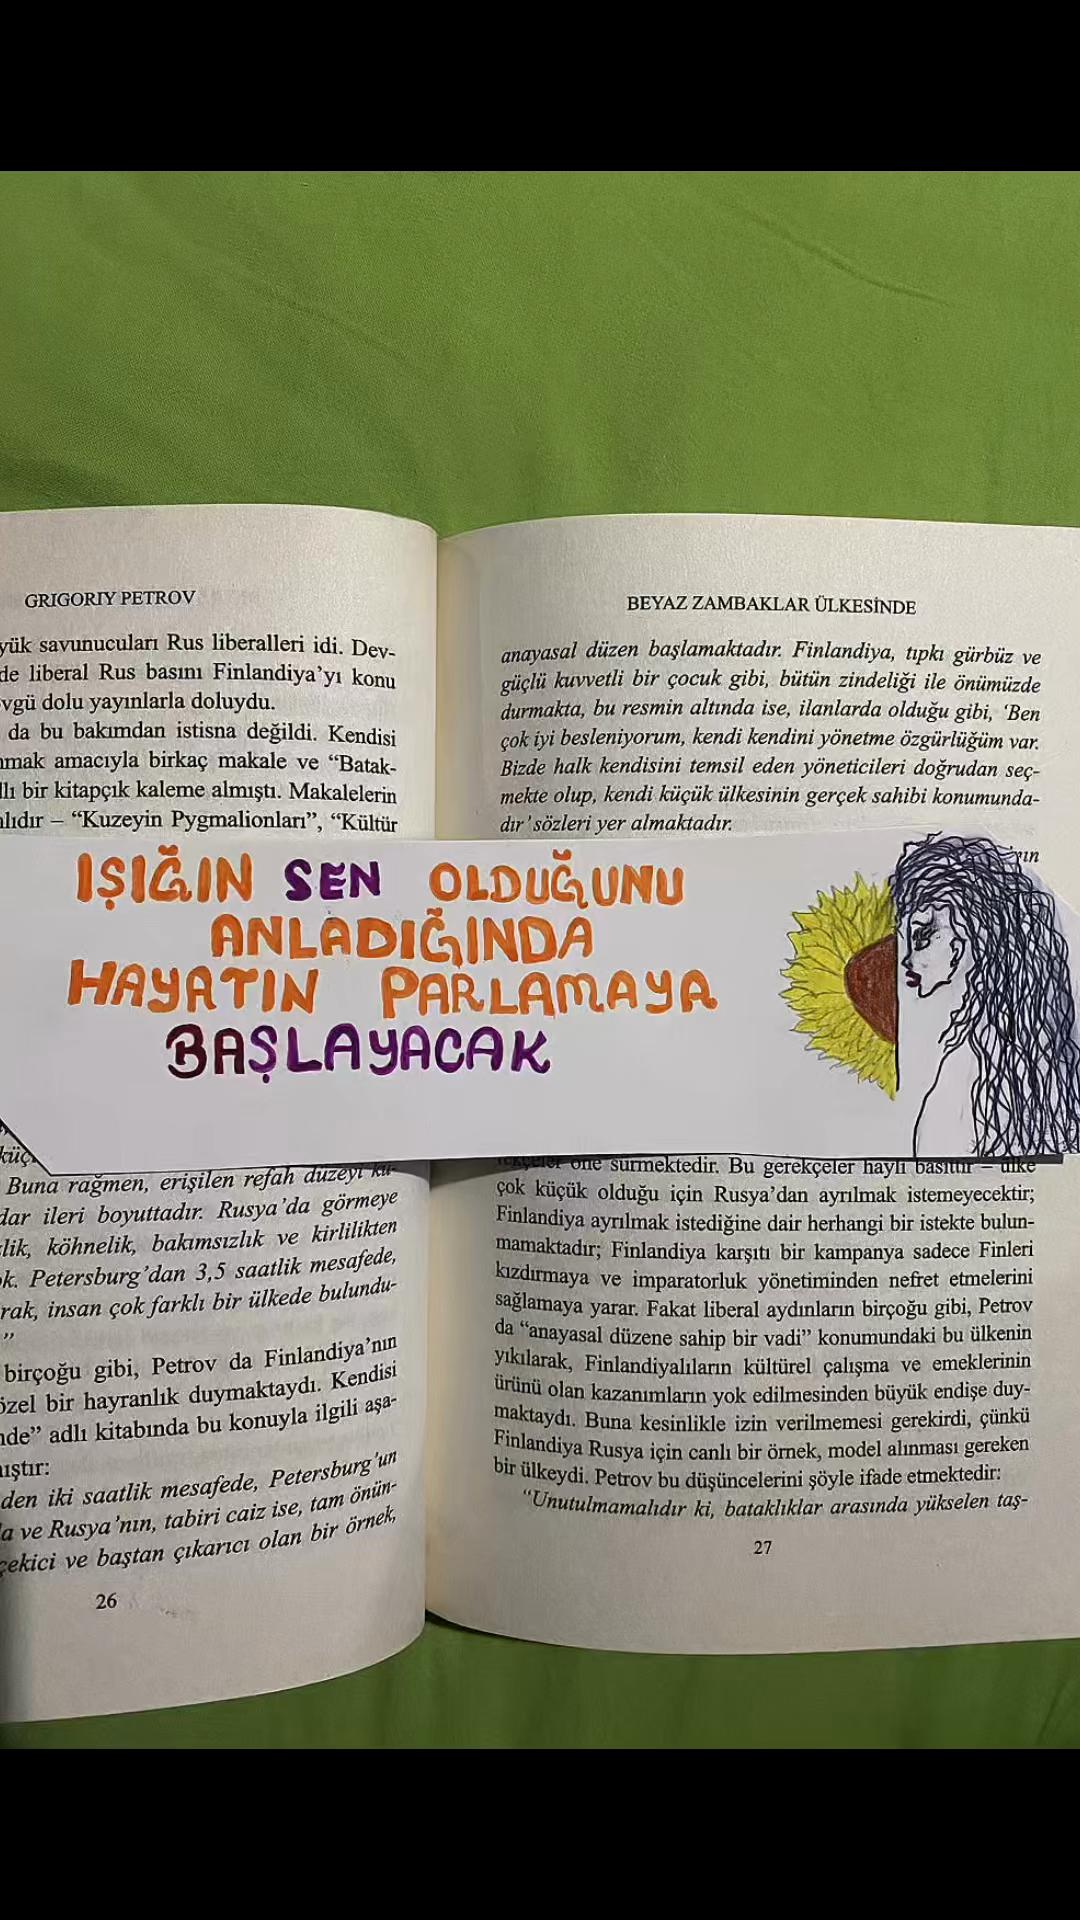 GRIGORIY PETROV
yük savunucuları Rus liberalleri idi. Dev-
de liberal Rus basını Finlandiya'yı konu
vgü dolu yayınlarla doluydu.
da bu bakımdan istisna değildi. Kendisi
mak amacıyla birkaç makale ve “Batak-
lı bir kitapçık kaleme almıştı. Makalelerin
lıdır – “Kuzeyin Pygmalionları”, “Kültür
IŞIĞIN SEN OLDUĞUNU
ANLADIĞINDA
HAYATIN PARLAMAYA
BAŞLAYACAK
küç
Buna rağmen, erişilen refah düzeyi ku-
dar ileri boyuttadır. Rusya'da görmeye
lik, köhnelik, bakımsızlık ve kirlilikten
k. Petersburg'dan 3,5 saatlik mesafede,
rak, insan çok farklı bir ülkede bulundu-
”
birçoğu gibi, Petrov da Finlandiya'nın
özel bir hayranlık duymaktaydı. Kendisi
nde” adlı kitabında bu konuyla ilgili aşa-
mıştır:
den iki saatlik mesafede, Petersburg'un
a ve Rusya'nın, tabiri caiz ise, tam önün-
çekici ve baştan çıkarıcı olan bir örnek,
26
BEYAZ ZAMBAKLAR ÜLKESİNDE
anayasal düzen başlamaktadır. Finlandiya, tıpkı gürbüz ve
güçlü kuvvetli bir çocuk gibi, bütün zindeliği ile önümüzde
durmakta, bu resmin altında ise, ilanlarda olduğu gibi, ‘Ben
çok iyi besleniyorum, kendi kendini yönetme özgürlüğüm var.
Bizde halk kendisini temsil eden yöneticileri doğrudan seç-
mekte olup, kendi küçük ülkesinin gerçek sahibi konumunda-
dır’ sözleri yer almaktadır.
'nın
öne sürmektedir. Bu gerekçeler hayli basittir – ülke
çok küçük olduğu için Rusya'dan ayrılmak istemeyecektir;
Finlandiya ayrılmak istediğine dair herhangi bir istekte bulun-
mamaktadır; Finlandiya karşıtı bir kampanya sadece Finleri
kızdırmaya ve imparatorluk yönetiminden nefret etmelerini
sağlamaya yarar. Fakat liberal aydınların birçoğu gibi, Petrov
da “anayasal düzene sahip bir vadi” konumundaki bu ülkenin
yıkılarak, Finlandiyalıların kültürel çalışma ve emeklerinin
ürünü olan kazanımların yok edilmesinden büyük endişe duy-
maktaydı. Buna kesinlikle izin verilmemesi gerekirdi, çünkü
Finlandiya Rusya için canlı bir örnek, model alınması gereken
bir ülkeydi. Petrov bu düşüncelerini şöyle ifade etmektedir:
“Unutulmamalıdır ki, bataklıklar arasında yükselen taş-
27